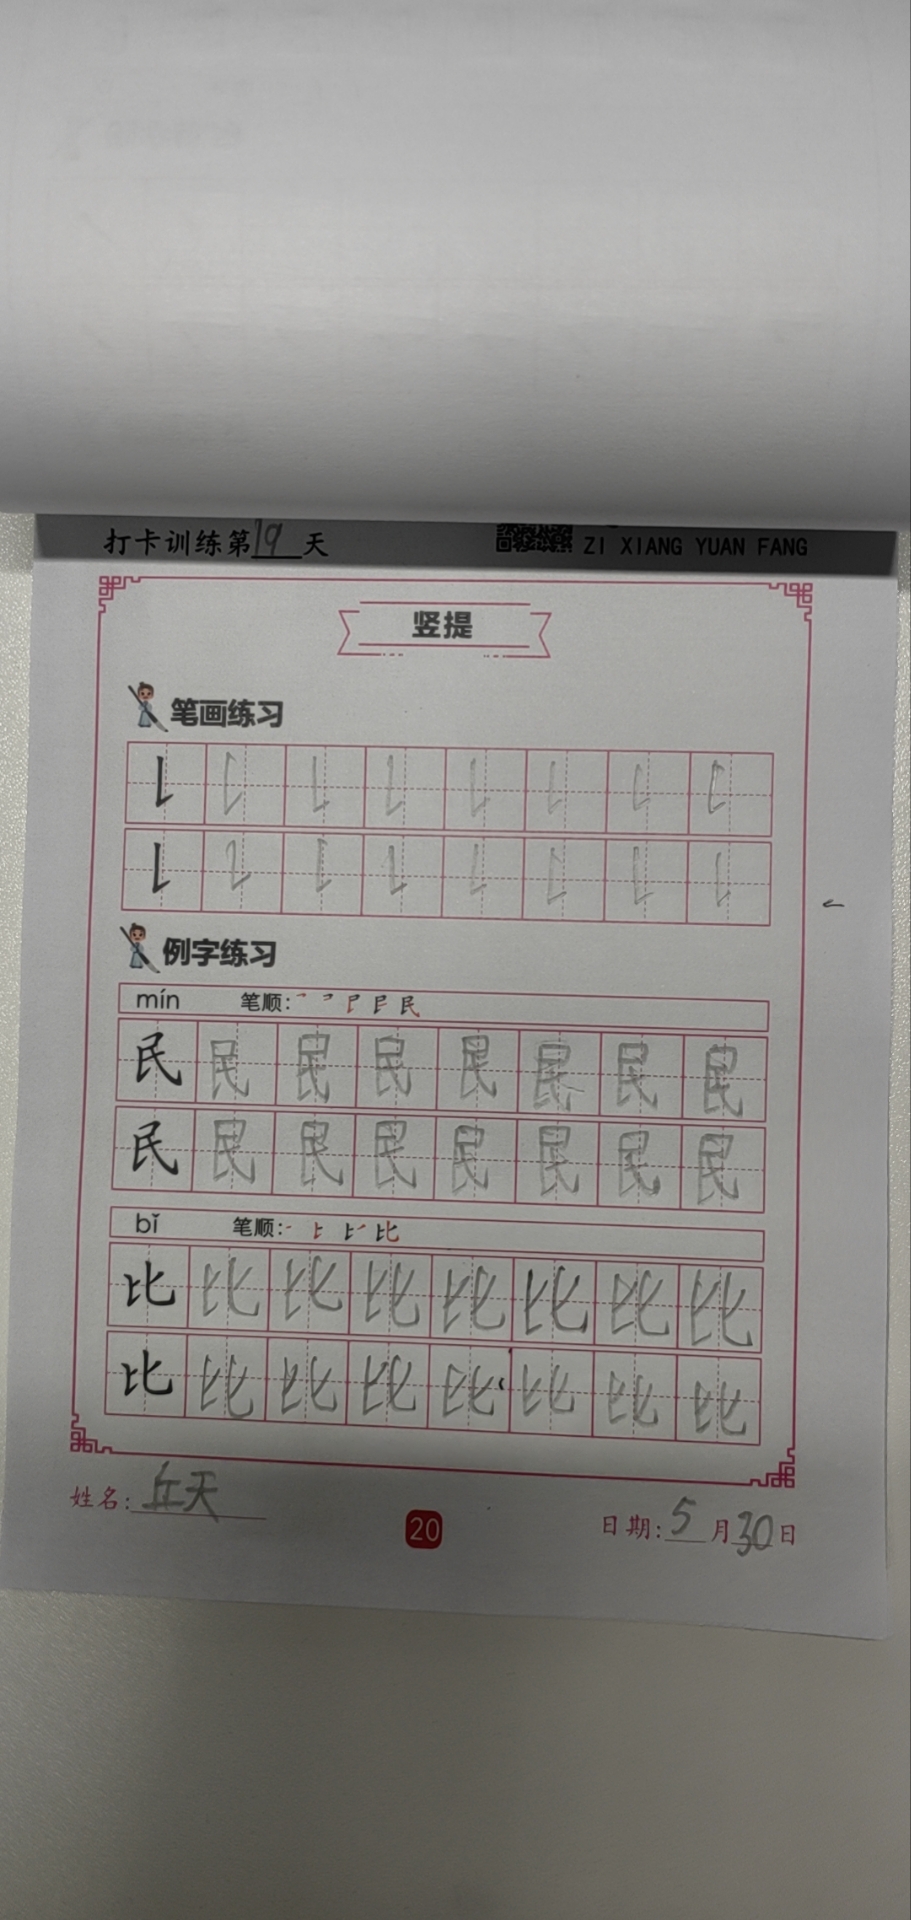 打卡训练第19天
ZI XIANG YUAN FANG
竖提
笔画练习
例字练习
mín 笔顺:
民 民 民 民 民 民 民 民
民 民 民 民 民 民 民 民
bǐ 笔顺:
比 比 比 比 比 比 比 比
比 比 比 比 比 比 比 比
姓名:丘天
20
日期:5月30日